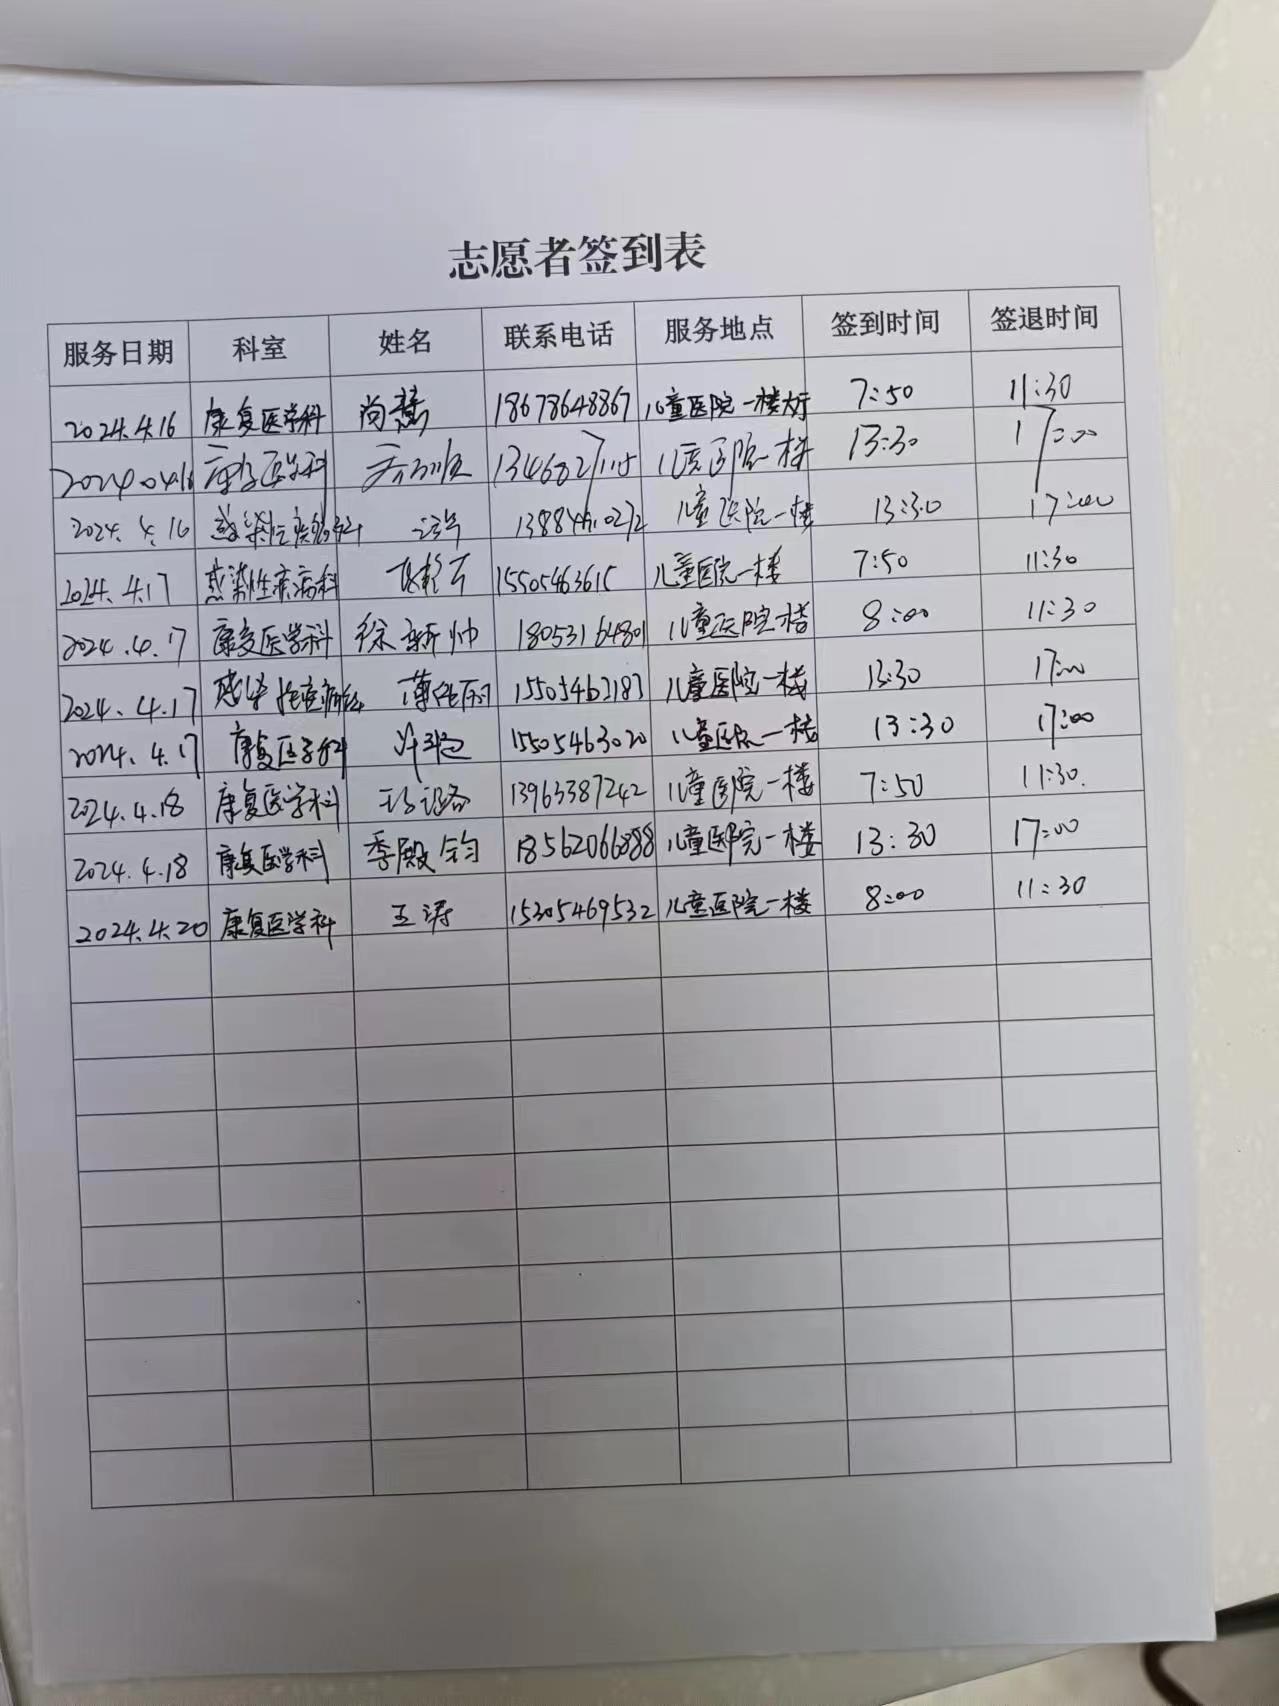 志愿者签到表
服务日期 科室 姓名 联系电话 服务地点 签到时间 签退时间
2024.4.16 康复医学科 尚慧 18678648867 儿童医院一楼大厅 7:50 11:30
2024.04.16 康复医学科 儿医院一楼 13:30 17:00
2024.4.16 感染性疾病科 儿童医院一楼 13:30 17:00
2024.4.17 感染性疾病科 15505463615 儿童医院一楼 7:50 11:30
2024.4.17 康复医学科 徐新帅 18053164801 儿童医院楼 8:00 11:30
2024.4.17 感染性疾病科 15505463187 儿童医院一楼 13:30 17:00
2024.4.17 康复医学科 15505463020 儿童医院一楼 13:30 17:00
2024.4.18 康复医学科 13963387242 儿童医院一楼 7:50 11:30
2024.4.18 康复医学科 季殿钧 18562066888 儿童医院一楼 13:30 17:00
2024.4.20 康复医学科 王涛 15305469532 儿童医院一楼 8:00 11:30